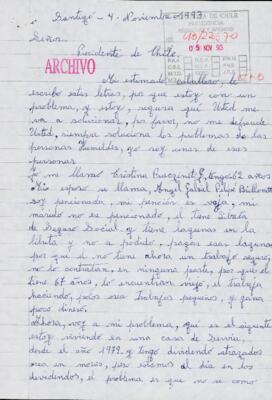 Santiago - 4 - Noviembre - 1993
Señor.
Presidente de Chile.
ARCHIVO
05 NOV 93
Mi estimado caballero, le
escribo estas letras, por que estoy con un
problema, y estoy, segura qué Usted me
va a solucionar, por favor, no me defraude
Usted, siempre soluciona los problemas de las
personas Humildes, yo soy unas de esas
personas.
Yo me llamo Cristina
tengo 62 años
Mi esposo se llama, Angel Gabriel
soy pencionada, mi pención es vaja, mi
marido no es pencionado, él tiene libreta
de Seguro Social y tiene lagunas en la
libreta y no a podido, pagar esas lagunas
por qué él no tiene ahora un trabajo seguro,
no lo contratan, en ninguna parte, por qué él
tiene 67 años, lo encuentran viejo, él trabaja
haciendo, polos trabajos pequeños, y gana
poco dinero.
Ahora, voy a mi problema, qué es el siguiente
estoy viviendo en una casa de Serviu,
desde el año 1979. y tengo dividendo atrazados
osea en mores, pero estamos al día en los
dividendos, el problema es que no se como